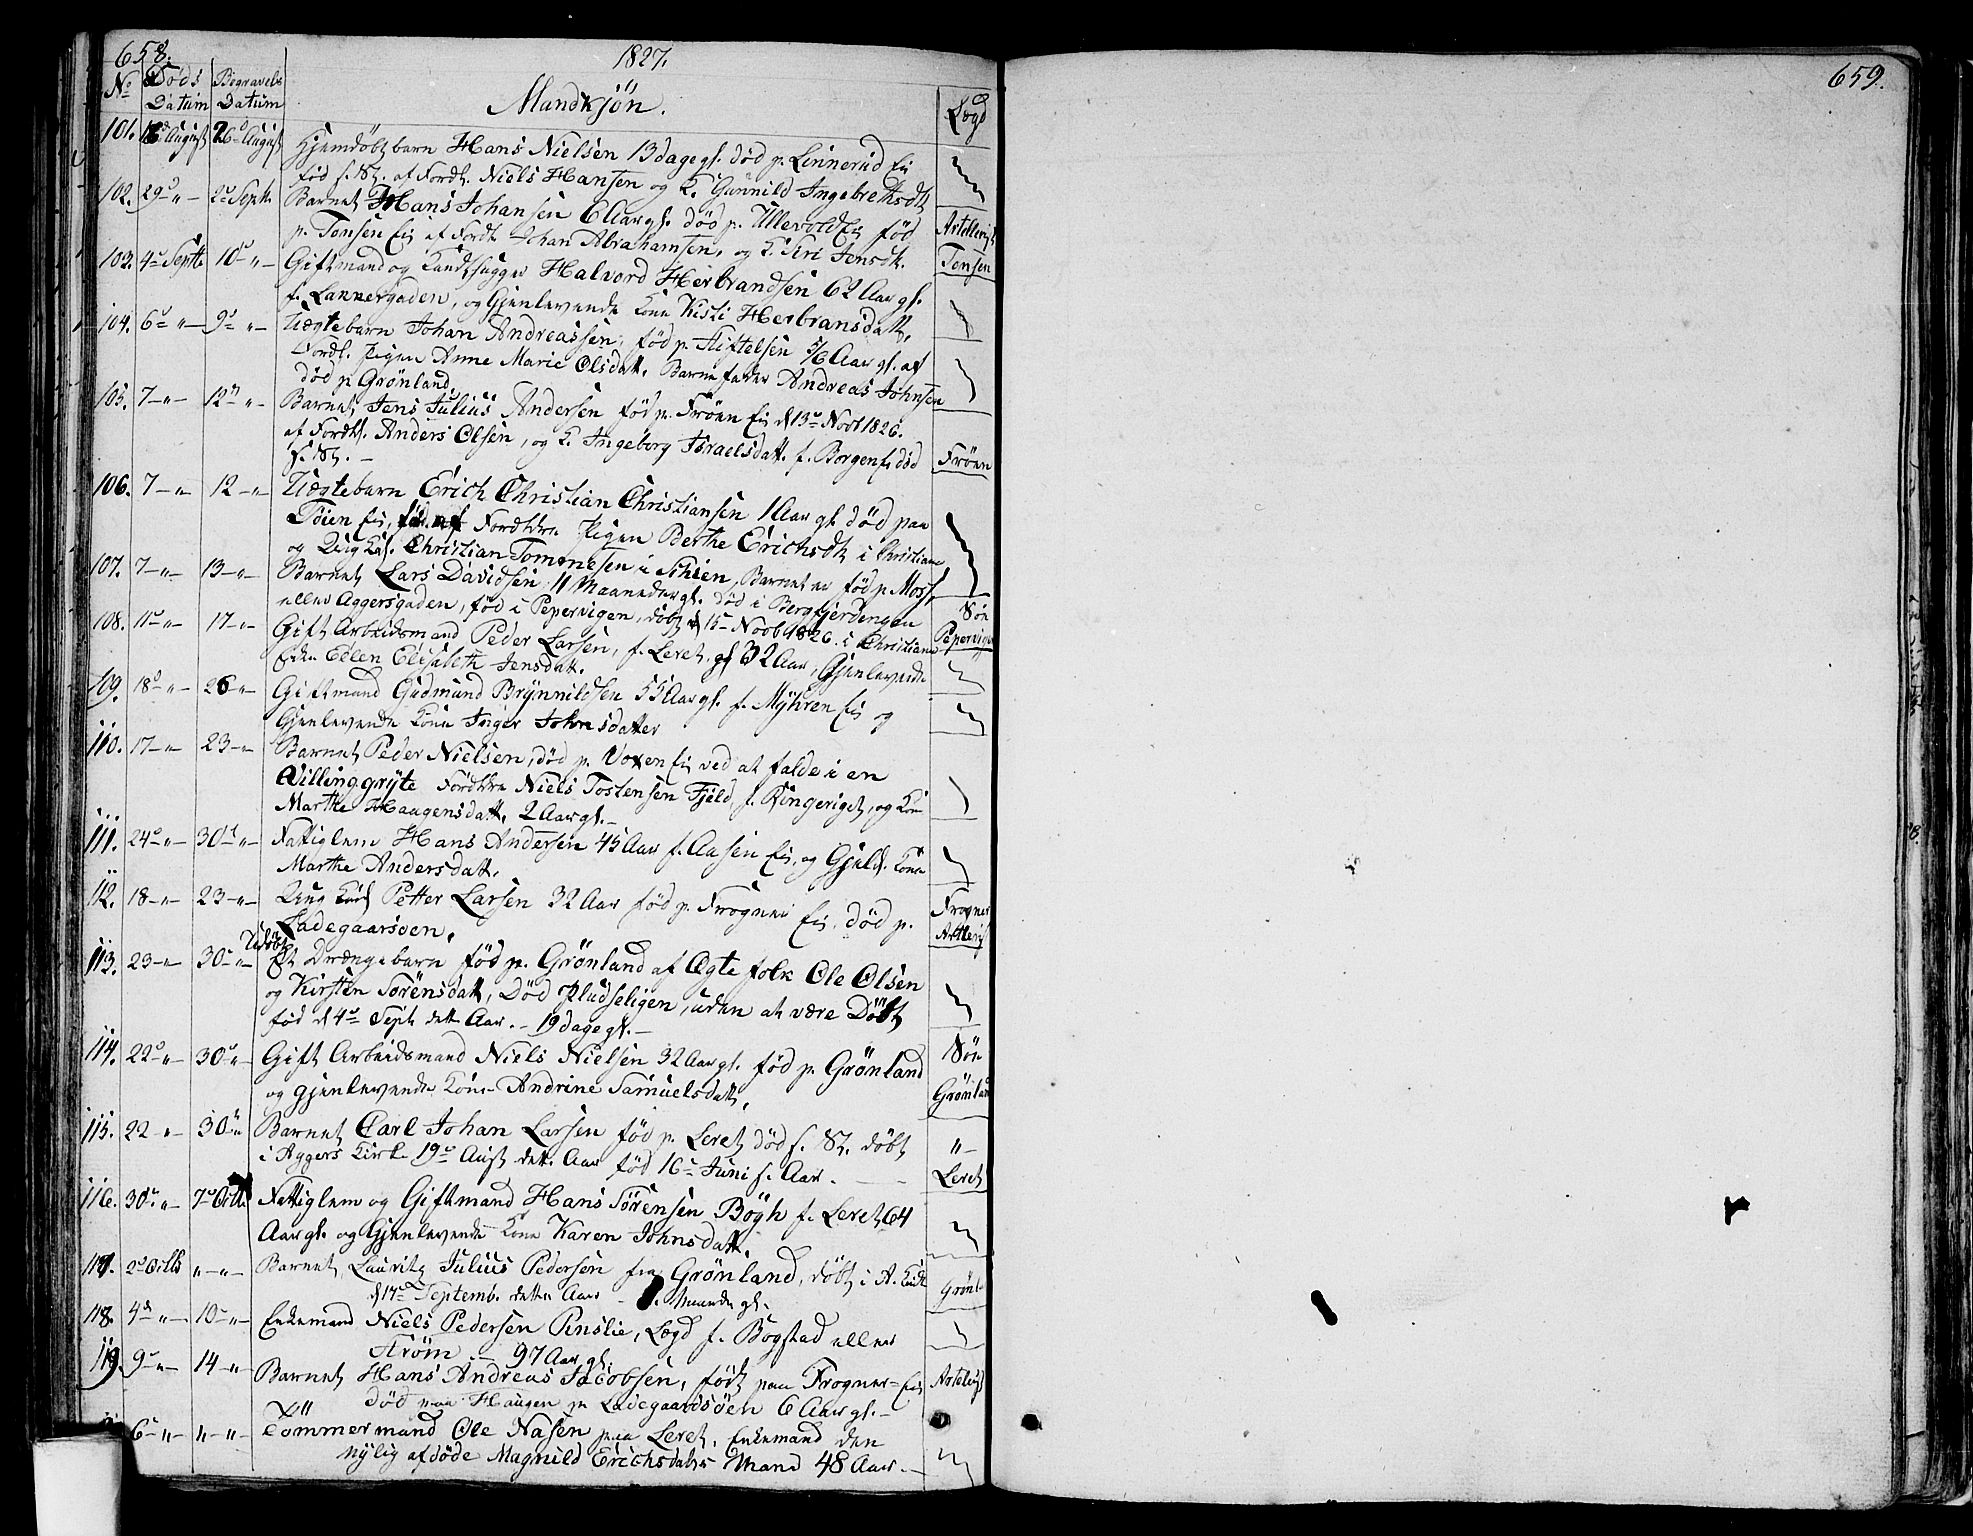 658.
1827.
No Döds Datum Begravels Datum
Mandkjön.
Lægd
101. 18de August 26d August Hjemdöbt barn Hans Nielsen 13 dage gl. död p. Linnerud Eie
föd s. St. af Fordl. Niels Hansen og K. Gunnild Ingebrethsdtr
102. 29d " 2d Septb Barnet Hans Johansen 6 Aar gl. död p. Ullevold Eie föd
p. Tonsen Eie af Fordl. Johan Abrahamsen, og K. Siri Jensdtr. Tonsen
103. 4d Septb 10d " Giftmand og Halvord Herbrandsen 62 Aar gl.
f. Lakkergaden, og Gjenlevende Kone Kisti Herbransdatt.
104. 6d " 9d " Uægtebarn Johan Andreassen, föd p. Stiftelsen 5/6 Aar gl. af
Fordl. Pigen Anne Marie Olsdatt. Barnefader Andreas Johnsen
död p. Grönland.
105. 7 " 12te " Barnet Jens Julius Andersen föd p. Fröen Eie d 13d Novb 1826.
af Fordl. Anders Olsen, og K. Ingeborg Israelsdatt. f. Borgen Eie död
s. St. Fröen
106. 7 " 12 " Uægtebarn Erich Christian Christiansen 1 Aar gl. död paa
Töien Eie, föd af Fordldre Pigen Berthe Erichsdtr i Christiania
og Ung Karl Christian Tommesen i Schien
107. 7 " 13 " Barnet Lars Davidsen 11 Maaneder gl. Barnet er föd p. Moss,
eller Aggersgaden, föd i Pepervigen, döbt d 15 Novb 1826 i Christiania död i Bergfjerdingen
Sön Pepervigen
108. 11d " 17 " Gift Arbeidsmand Peder Larsen, f. Leret gl 32 Aar, Gjenlevende
Enke Ellen Elisabeth Jensdatt.
109. 18d " 26 " Giftmand Gudmund Brynnildsen 55 Aar gl. f. Myhren Eie og
Gjenlevende Kone Inger Johnsdatter
110. 17 " 23 " Barnet Peder Nielsen, död p. Voxen Eie ved at falde i en
Villinggryte Fordldre Niels Tostensen Fjeld, f. Ringeriget, og Kone
Marthe Haagensdatt. 2 Aar gl.
111. 24d " 30te " Fattiglem Hans Andersen 45 Aar f. Aasen Eie, og Gjenl. Kone
Marthe Andersdatt.
112. 18 " 23 " Ung Karl Petter Larsen 32 Aar föd p. Frogner Eie, död p.
Ladegaarsöen. Frogner
113. 23 " 30 " Udöbt Et Drængebarn föd p. Grönland af Ægte folk Ole Olsen
og Kirsten Sörensdatt, Död Pludseligen, uden at være Döbt
föd d 4de Sept dette Aar. 19 dage gl.
114. 22d " 30d " Gift Arbeidsmand Niels Nielsen 32 Aar gl. föd p. Grönland
og gjenlevende Kone Andrine Samuelsdatt. Sön Grönland
115. 22 " 30 " Barnet Carl Johan Larsen föd p. Leret död s. St. döbt
i Aggers Kirke 19d Aust dette Aar föd 16d Juni s. Aar. " Leret
116. 30d " 7d Octb Fattiglem og Giftmand Hans Sörensen Bögh f. Leret 64
Aar gl. og Gjenlevende Kone Karen Johnsdatt.
117. 2d Octb " " Barnet Lauritz Julius Pedersen fra Grönland, döbt i A. Kirke
d 17d Septemb. dette Aar 1. Maaned gl. Grönl.
118. 4de " 10 " Enkemand Niels Pedersen Pinslie, Lægd f. Bogstad eller
Ström 97 Aar gl.
119. 9d " 14 " Barnet Hans Andreas Jacobsen, födt paa Frogner Eie
död paa Haugen p. Ladegaardsöen 6 Aar gl.
6 " " " Tömmermand Ole Nasen paa Leret, Enkemand den
nylig afdöde Magnild Erichsdatter Mand 48 Aar.
659.